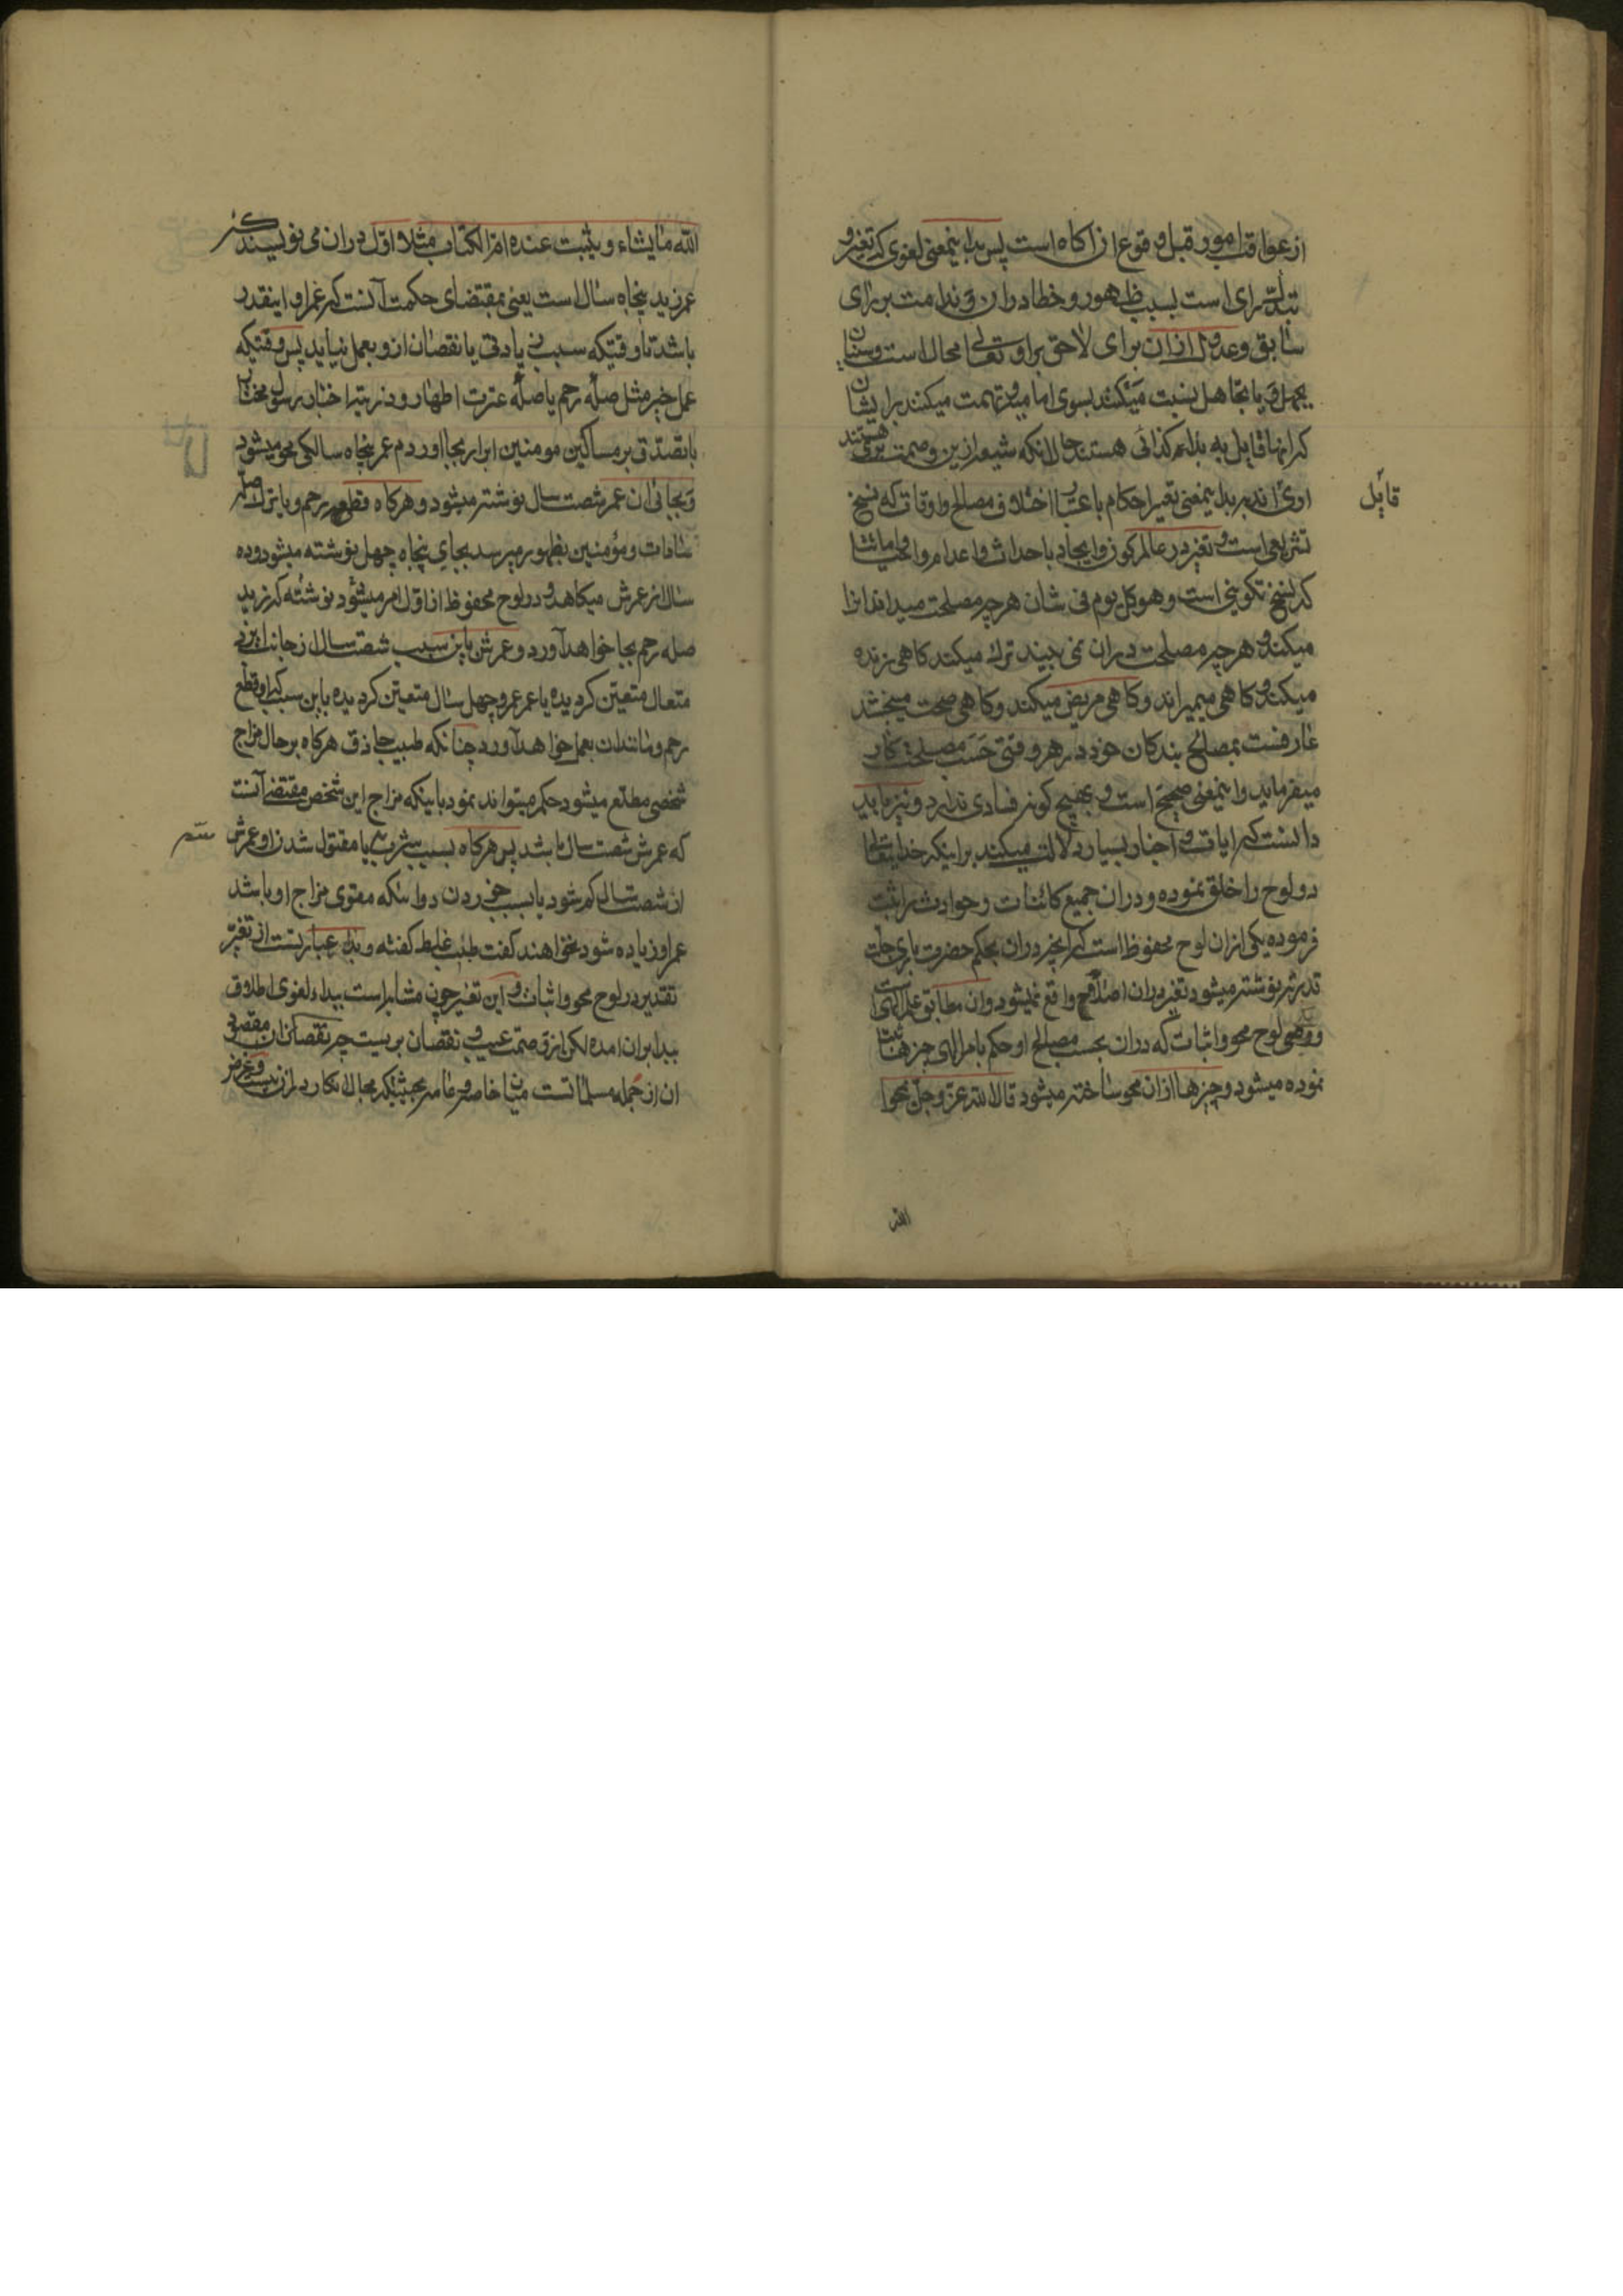 از عواقب امور و قبل و قوع ان اکاه است پس بدا بنمعنی لغوی که تغیر و
تبدل رای است بسبب ظهور و خطا دران و ندامت بر رای
سابق و عدول ازان برای لاحق براو تعالی محال است و سنیان
بجهل و یا تجاهل نسبت میکنند بسوی امامیه و تهمت میکنند برایشان
که انها قایل به بداء کذائی هستند حالانکه شیعه ازین وصمت بری هستند
اری اند به بدا بمعنی تغیر احکام باعتبار اختلاف مصالح و اوقات که نسخ
قایل
تشریعی است و تغیر در عالم کون و ایجاد باحداث و اعدام و احیا و اماتت
که نسخ تکوینی است و هو کل یوم فی شان هرچه مصلحت میداند انرا
میکند و هرچه مصلحت دران نمی بیند ترک میکند کاهی زنده
میکند و کاهی میمیراند و کاهی مریض میکند و کاهی صحت میبخشد
عارفست بمصالح بندکان خود در هر وقتی حسب مصلحت کار
میفرماید و اینمعنی صحیح است و بهیچ کونه فسادی ندارد و نیز باید
دانست که ایات و اخبار بسیار دلالت میکنند براینکه خدایتعالی
دو لوح را خلق نموده و دران جمیع کائنات و حوادث را ثبت
فرموده یکی ازان لوح محفوظ است که انچه دران بحکم حضرت باری جلت
قدرته نوشته میشود تغیر دران اصلا واقع نمیشود و ان مطابق علم الهی است
و دومی لوح محو و اثبات که دران بحسب مصالح او حکم بامر الهی چیزها ثبت
نموده میشود و چیزها ازان محو ساخته میشود قال الله عز و جل یمحوا
الله
الله ما یشاء و یثبت عنده ام الکتاب مثلا اول دران می نویسند که
عمر زید پنجاه سال است یعنی بمقتضای حکمت آنست که عمر او اینقدر
باشد تا وقتیکه سبب زیادتی یا نقصان ازو بعمل نیاید پس وقتیکه
عمل خیر مثل صله رحم یا صله عترت اطهار و ذریه اخیار رسول مختار
یا تصدق بر مساکین مومنین ابرار بجا اورد م عمر پنجاه سالکی محو میشود
و بجای ان عمر شصت سال نوشته میشود و هرکاه قطع رحم و یا ترک صله
سادات و مؤمنین بظهور میرسد بجای پنجاه چهل نوشته میشود و ده
سال از عمرش میکاهد و در لوح محفوظ از اول امر میشود نوشته که زید
صله رحم بجا خواهد آورد و عمرش باین سبب شصت سال از جانب ایزد
متعال متعین کردیده یا عمر عمرو چهل سال متعین کردیده باین سبب که او قطع
رحم و مانند ان بعمل خواهد آورد چنانکه طبیب حاذق هرکاه بر حال مزاج
شخصی مطلع میشود حکم میتواند نمود باینکه مزاج این شخص مقتضی آنست
که عمرش شصت سال باشد پس هرکاه بسبب شرب یا مقتول شدن او عمرش
سم
از شصت سال کم شود یا بسبب خوردن دوائیکه مقوی مزاج او باشد
عمر او زیاده شود نخواهند کفت طبیب غلط کفته و بداء عبارتست از تغیر
تقدیر در لوح محو و اثبات و این تغیر چون مشابه است ببداء لغوی اطلاق
بدا بران امده لکن از وصمت عیب و نقصان بریست چه نقصان
ان از جمله مسلماتست میان خاصه و عامه بحیثیکه مجال انکار دران نیست و غرض